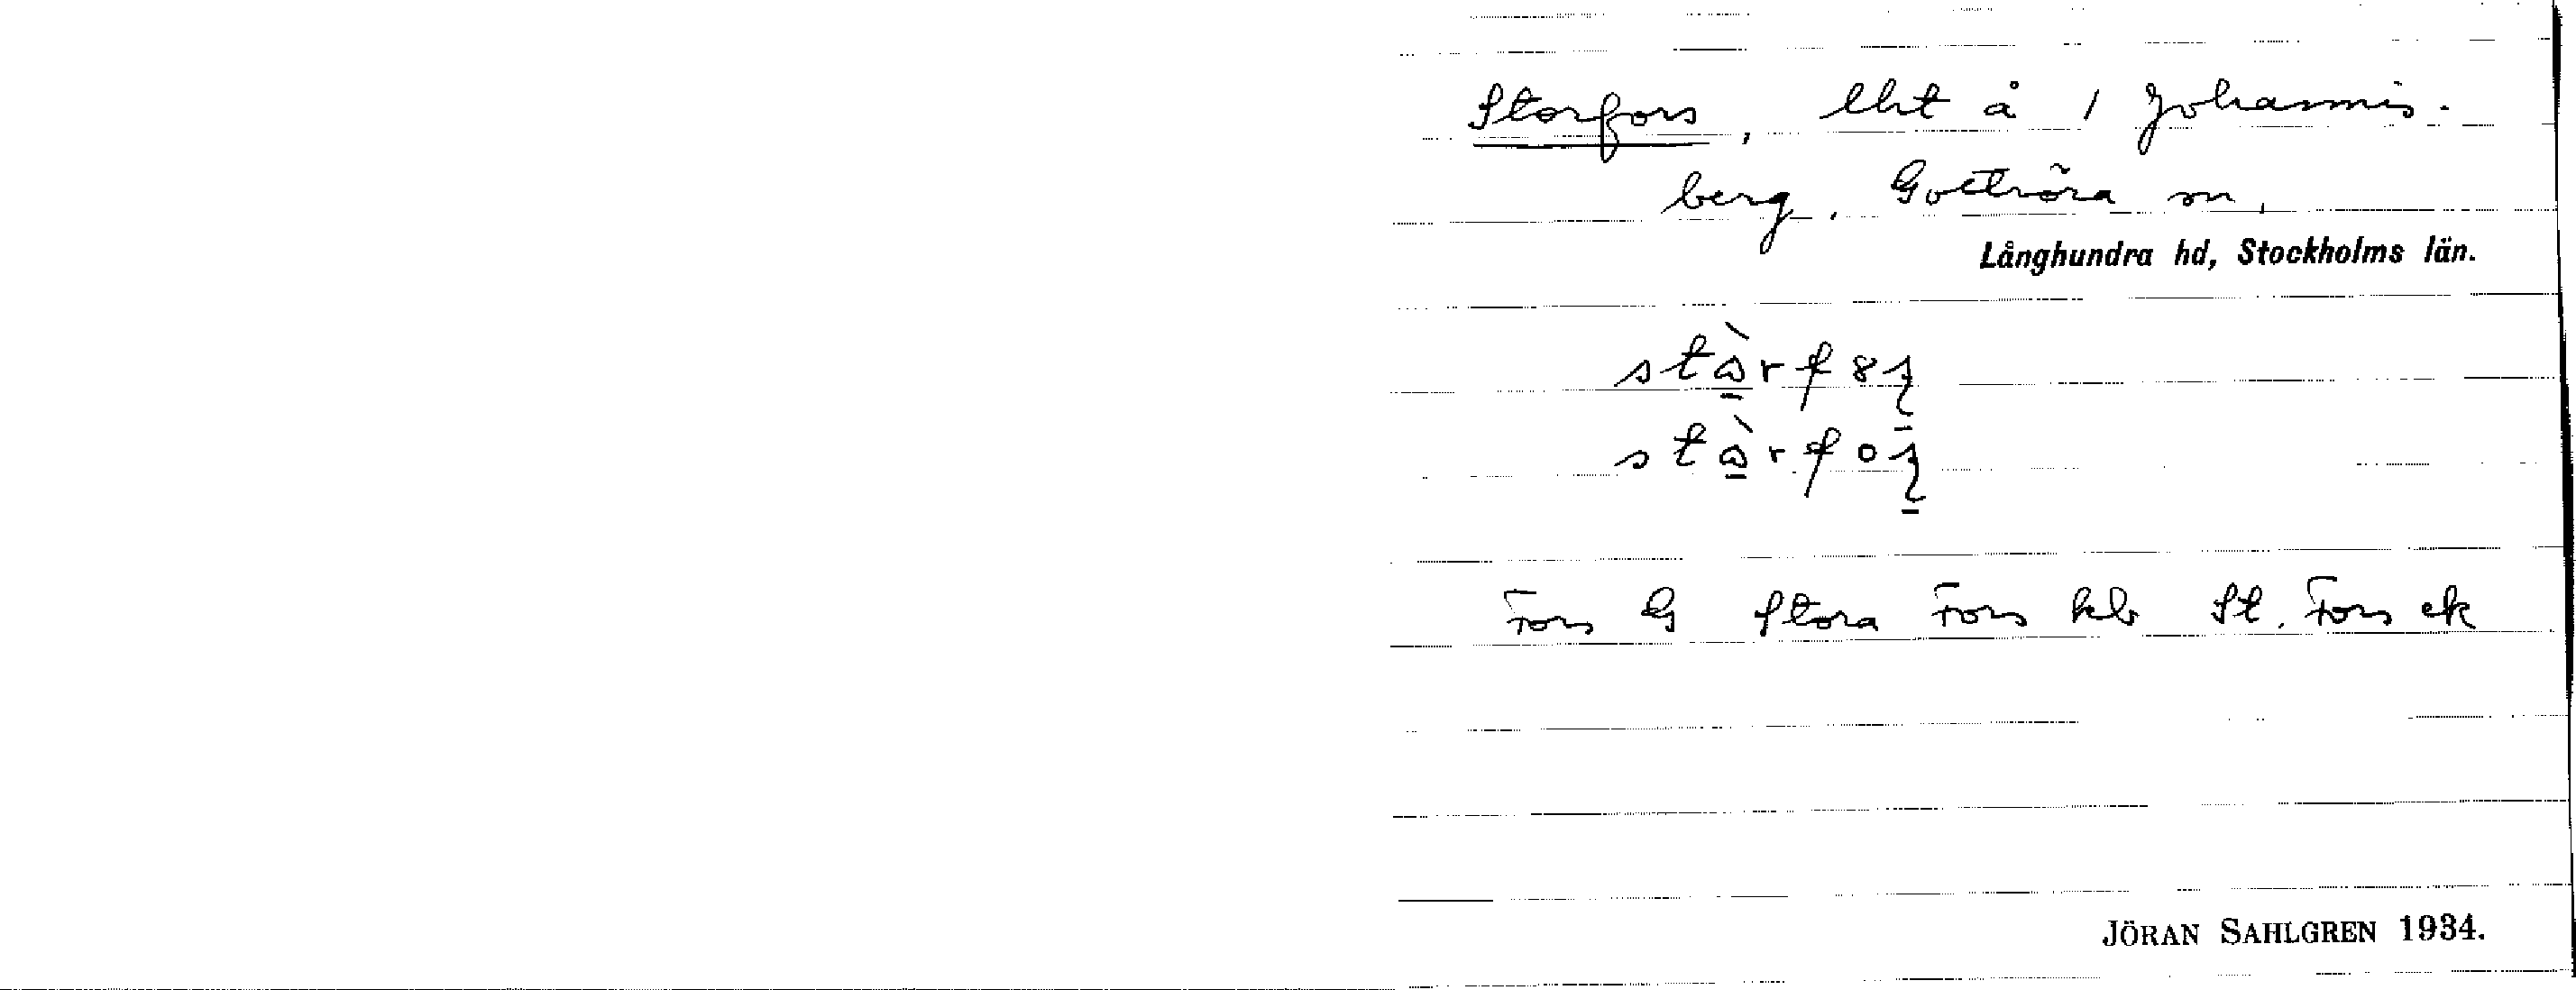 Storfors, lht å 1 Johannis-
berg. Gottröra sn,
Långhundra hd, Stockholms län.
Fors G Stora Fors kb St. Fors ek
JÖRAN SAHLGREN 1934.